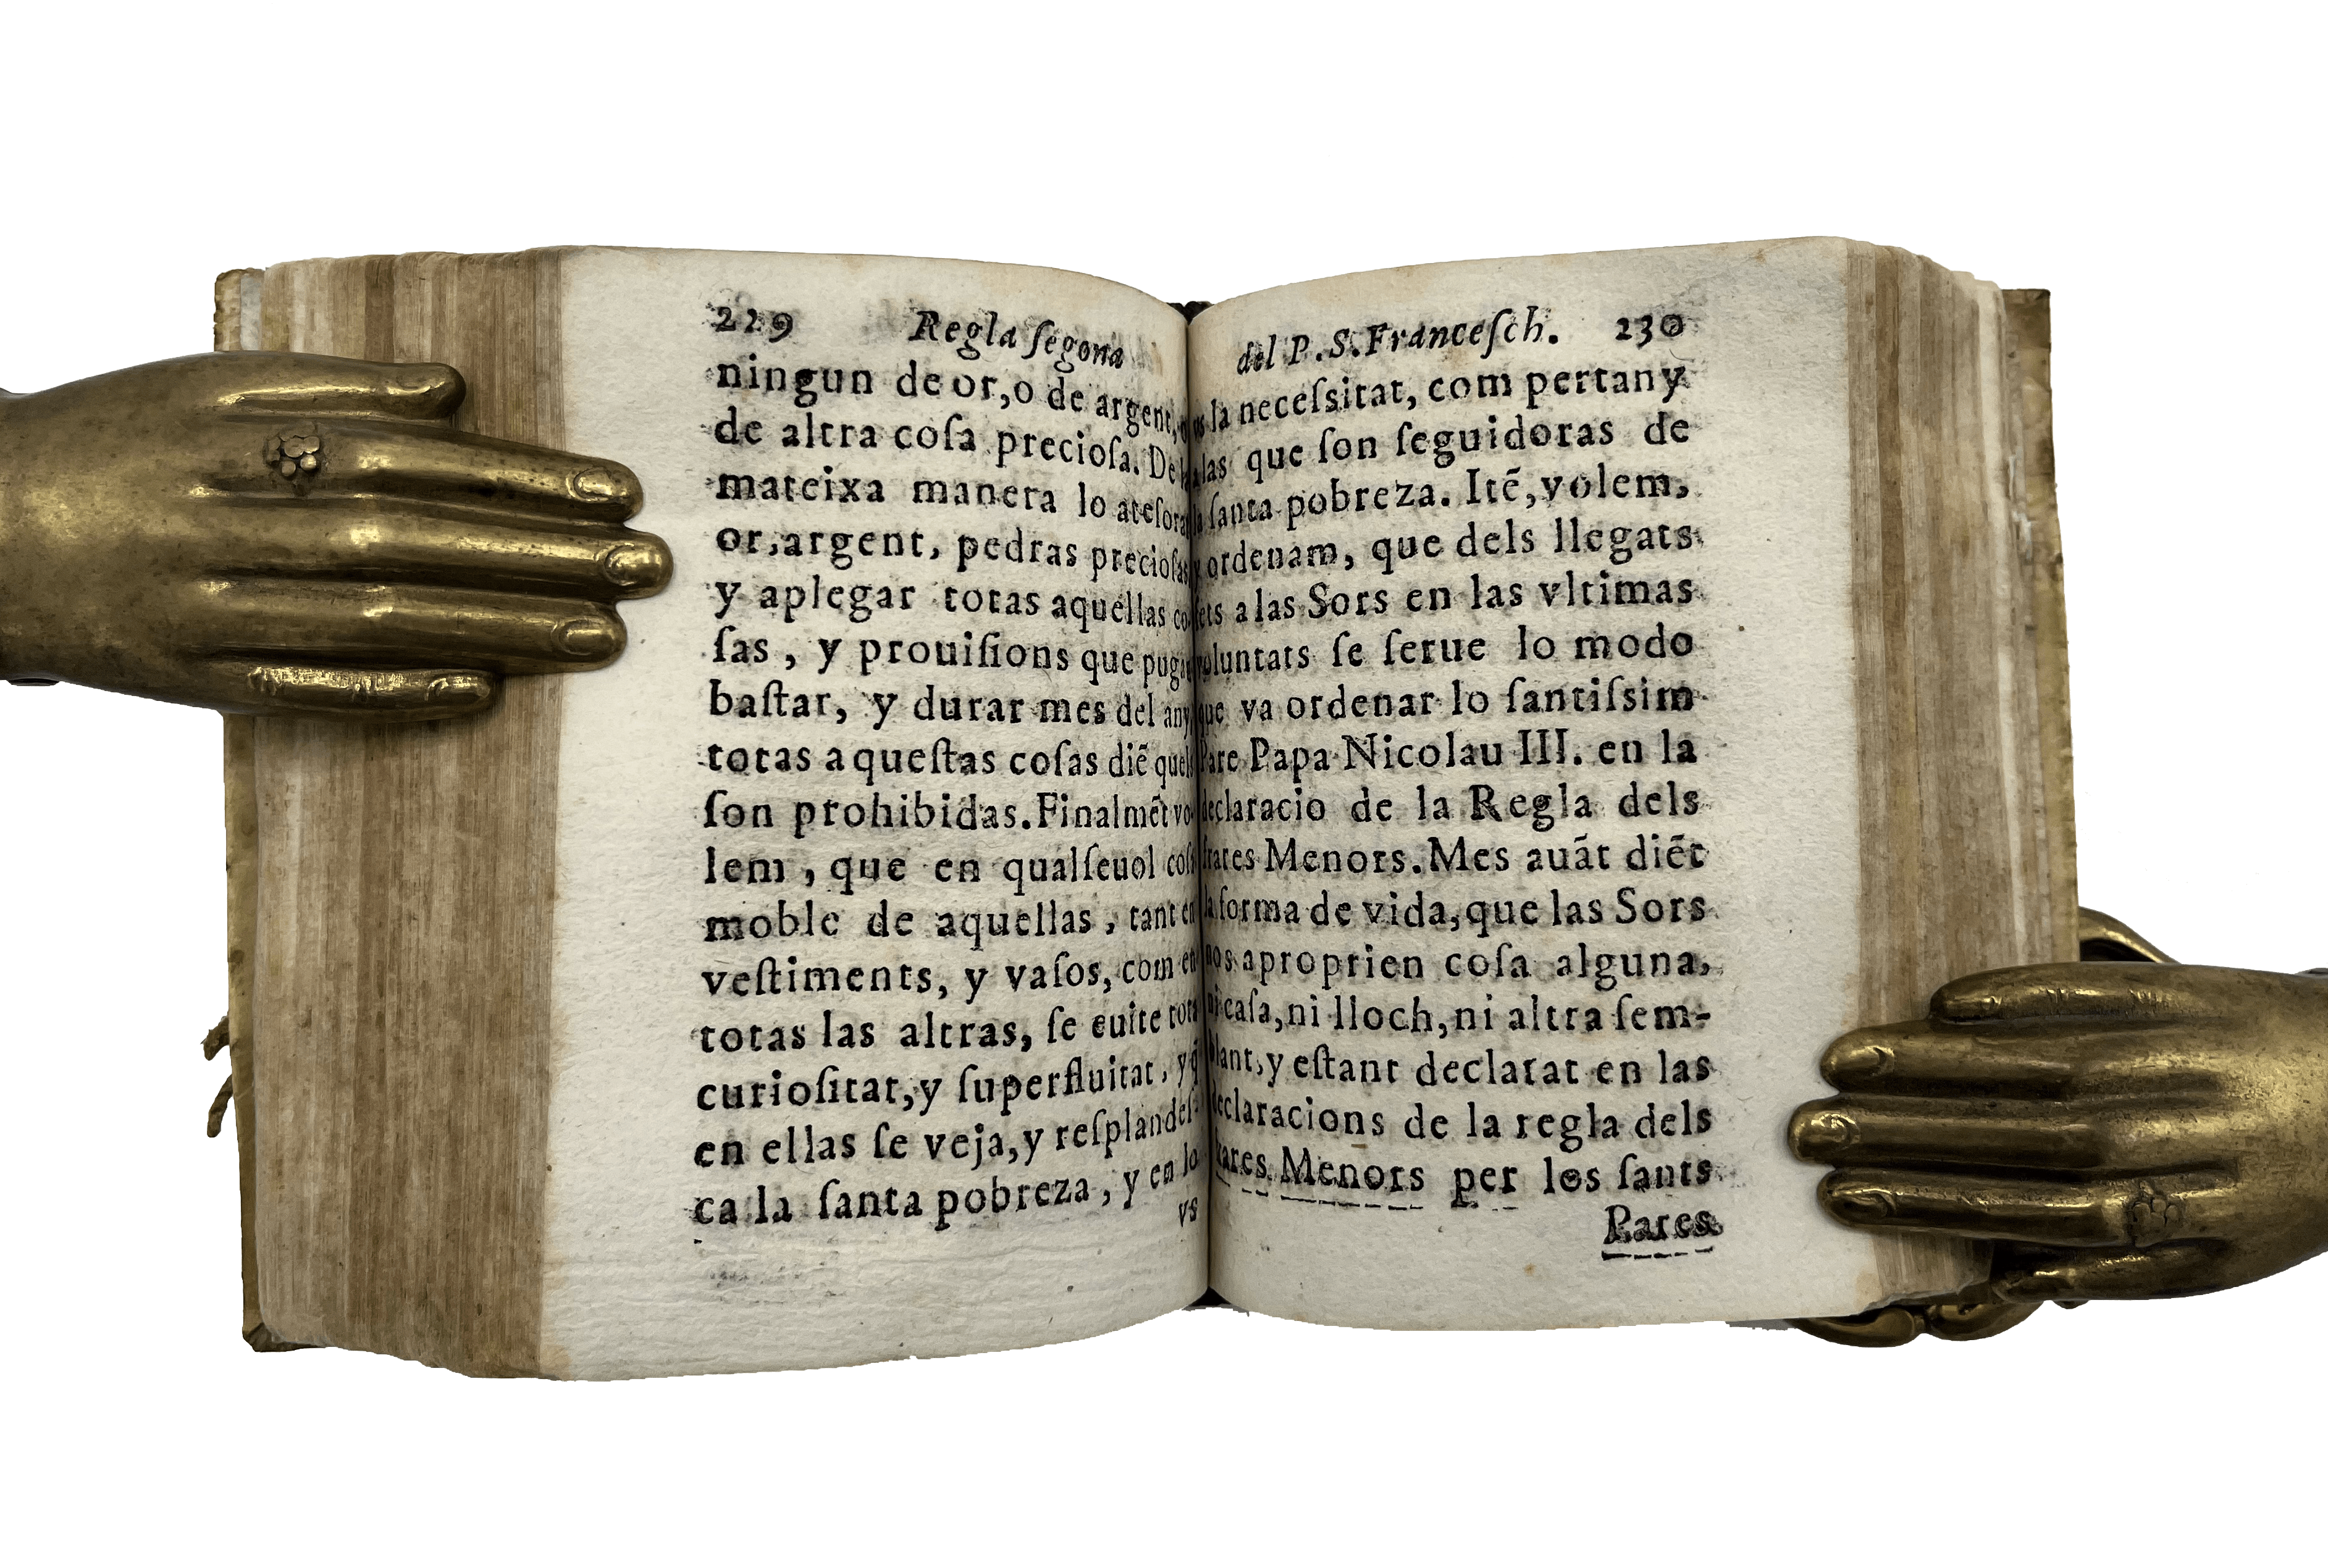 229 Regla ſegona
ningun de or,o de argent,
de altra coſa precioſa. De
mateixa manera lo ateſorar
or,argent, pedras precioſas
y aplegar totas aquellas co
ſas , y prouiſions que pugã
baſtar, y durar mes del any,
totas aqueſtas coſas diẽ quels
ſon prohibidas. Finalmẽt vo-
lem , que en qualſeuol coſa
moble de aquellas , tant en
veſtiments, y vaſos, com en
totas las altras, ſe euite tota
curioſitat,y ſuperfluitat, y q̃
en ellas ſe veja,y reſplandeſ-
ca la ſanta pobreza , y en lo
vs
del P. S. Franceſch. 230
la neceſsitat, com pertany
las que ſon ſeguidoras de
la ſanta pobreza. Itẽ,volem,
y ordenam, que dels llegats
fets a las Sors en las vltimas
voluntats ſe ſerue lo modo
que va ordenar lo ſantiſsim
Pare Papa Nicolau III. en la
declaracio de la Regla dels
frares Menors. Mes auãt diẽt
la forma de vida,que las Sors
nos aproprien coſa alguna,
ni caſa,ni lloch,ni altra ſem-
blant,y eſtant declarat en las
declaracions de la regla dels
frares Menors per los ſants
Pares